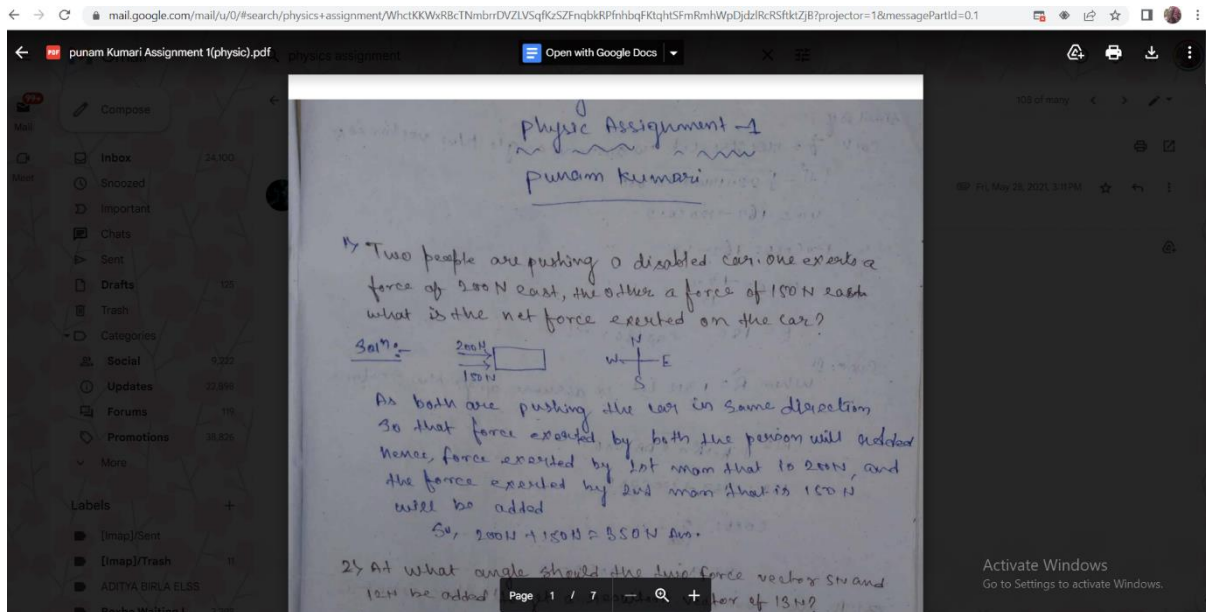 mail.google.com/mail/u/0/#search/physics+assignment/WhctKKWxRBcTNmbrrDVZLVSqfKzSZFnqbkRPfnhbqFKtqhtSFmRmhWpDjdzlRcRSftktZjB?projector=1&messagePartId=0.1
PDF punam Kumari Assignment 1(physic).pdf
physics assignment
Open with Google Docs
99+
Mail
Meet
Compose
108 of many
Inbox 24,100
Snoozed
Important
Chats
Sent
Drafts 125
Trash
Categories
Social 9,222
Updates 22,896
Forums 119
Promotions 38,826
More
Labels
[Imap]/Sent
[Imap]/Trash 11
ADITYA BIRLA ELSS
Fri, May 28, 2021, 3:11 PM
physic Assignment -1
punam kumari
1) Two people are pushing a disabled car. one exerts a
force of 200 N east, the other a force of 150 N east
what is the net force exerted on the car?
Solⁿ:-
200N
150N
N
W E
S
As both are pushing the car in same direction
so that force exerted by both the person will added
hence, force exerted by 1st man that is 200N, and
the force exerted by 2nd man that is 150 N
will be added
So, 200N + 150N = 350N Ans.
2) At what angle should the two force vector 5N and
12N be added vector of 13N?
Page 1 / 7
Activate Windows
Go to Settings to activate Windows.